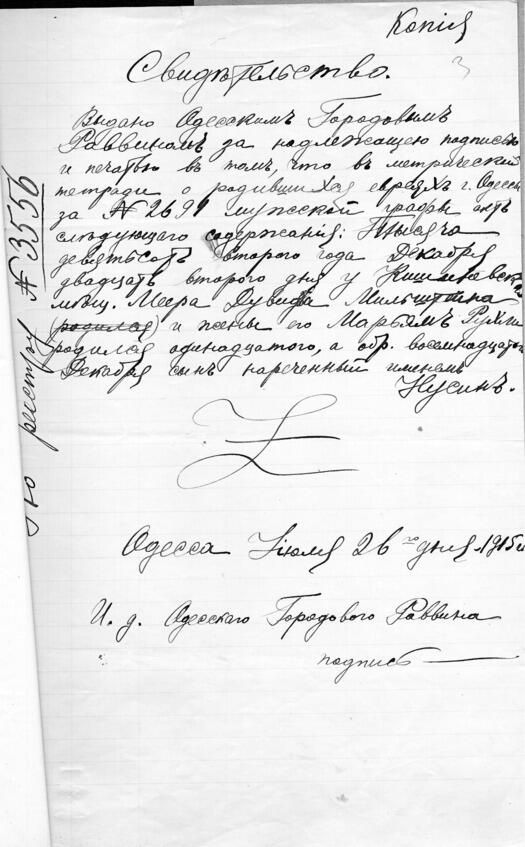 Копія
Свидѣтельство.
Выдано Одесскимъ Городовымъ
Раввиномъ за надлежащею подписью
и печатью въ томъ, что въ метрической
тетради о родившихся евреяхъ г. Одессы
за № 2691 мужской графы актъ
слѣдующаго содержанія: Тысяча
девятьсотъ второго года Декабря
двадцать второго дня у Кишиневск
мѣщ. Меера Дувида Мильштейна
(родился) и жены его Марьямъ Рухли
родился одинадцатого, а обр. восемнадцатого
Декабря сынъ нареченный именемъ
Нусинъ.
Одесса Іюля 26 го дня 1915 г.
И. д. Одесскаго Городового Раввина
подпись
По реестру № 3556